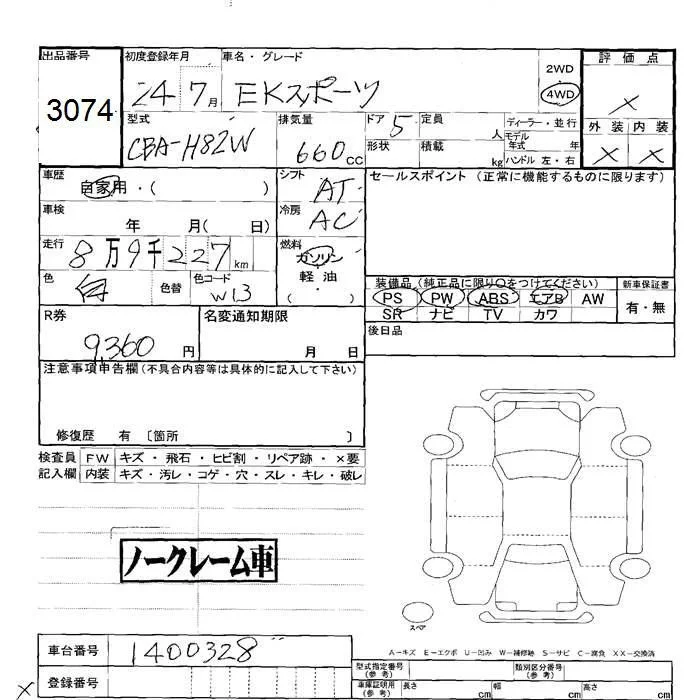 出品番号 初度登録年月 車名・グレード 評価点
3074 24 7月 EKスポーツ 2WD 4WD ×
型式 排気量 ドア 定員 ディーラー・並行 外装 内装
CBA-H82W 660CC 5 人 モデル年式 年 × ×
形状 積載 kg ハンドル 左・右
車歴 自家用・( ) シフト AT セールスポイント (正常に機能するものに限ります)
車検 年 月( 日) 冷房 AC
走行 8万9千227km 燃料 ガソリン
軽油
・
( )
色 白 色替 色コード W13
装備品 (純正品に限り○をつけてください) 新車保証書
PS PW ABS エアB AW 有・無
SR ナビ TV カワ
R券 名変通知期限 後日品
9,360円 月 日
注意事項申告欄(不具合内容等は具体的に記入して下さい)
修復歴 有 〔箇所 〕
検査員 FW キズ・飛石・ヒビ割・リペア跡・×要
記入欄 内装 キズ・汚レ・コゲ・穴・スレ・キレ・破レ
ノークレーム車
スペア
A−キズ E−エクボ U−凹み W−補修跡 S−サビ C−腐食 XX−交換済
車台番号 1400328
型式指定番号(参考) 類別区分番号(参考)
× 登録番号
車庫証明用(参考) 長さ cm 幅 cm 高さ cm